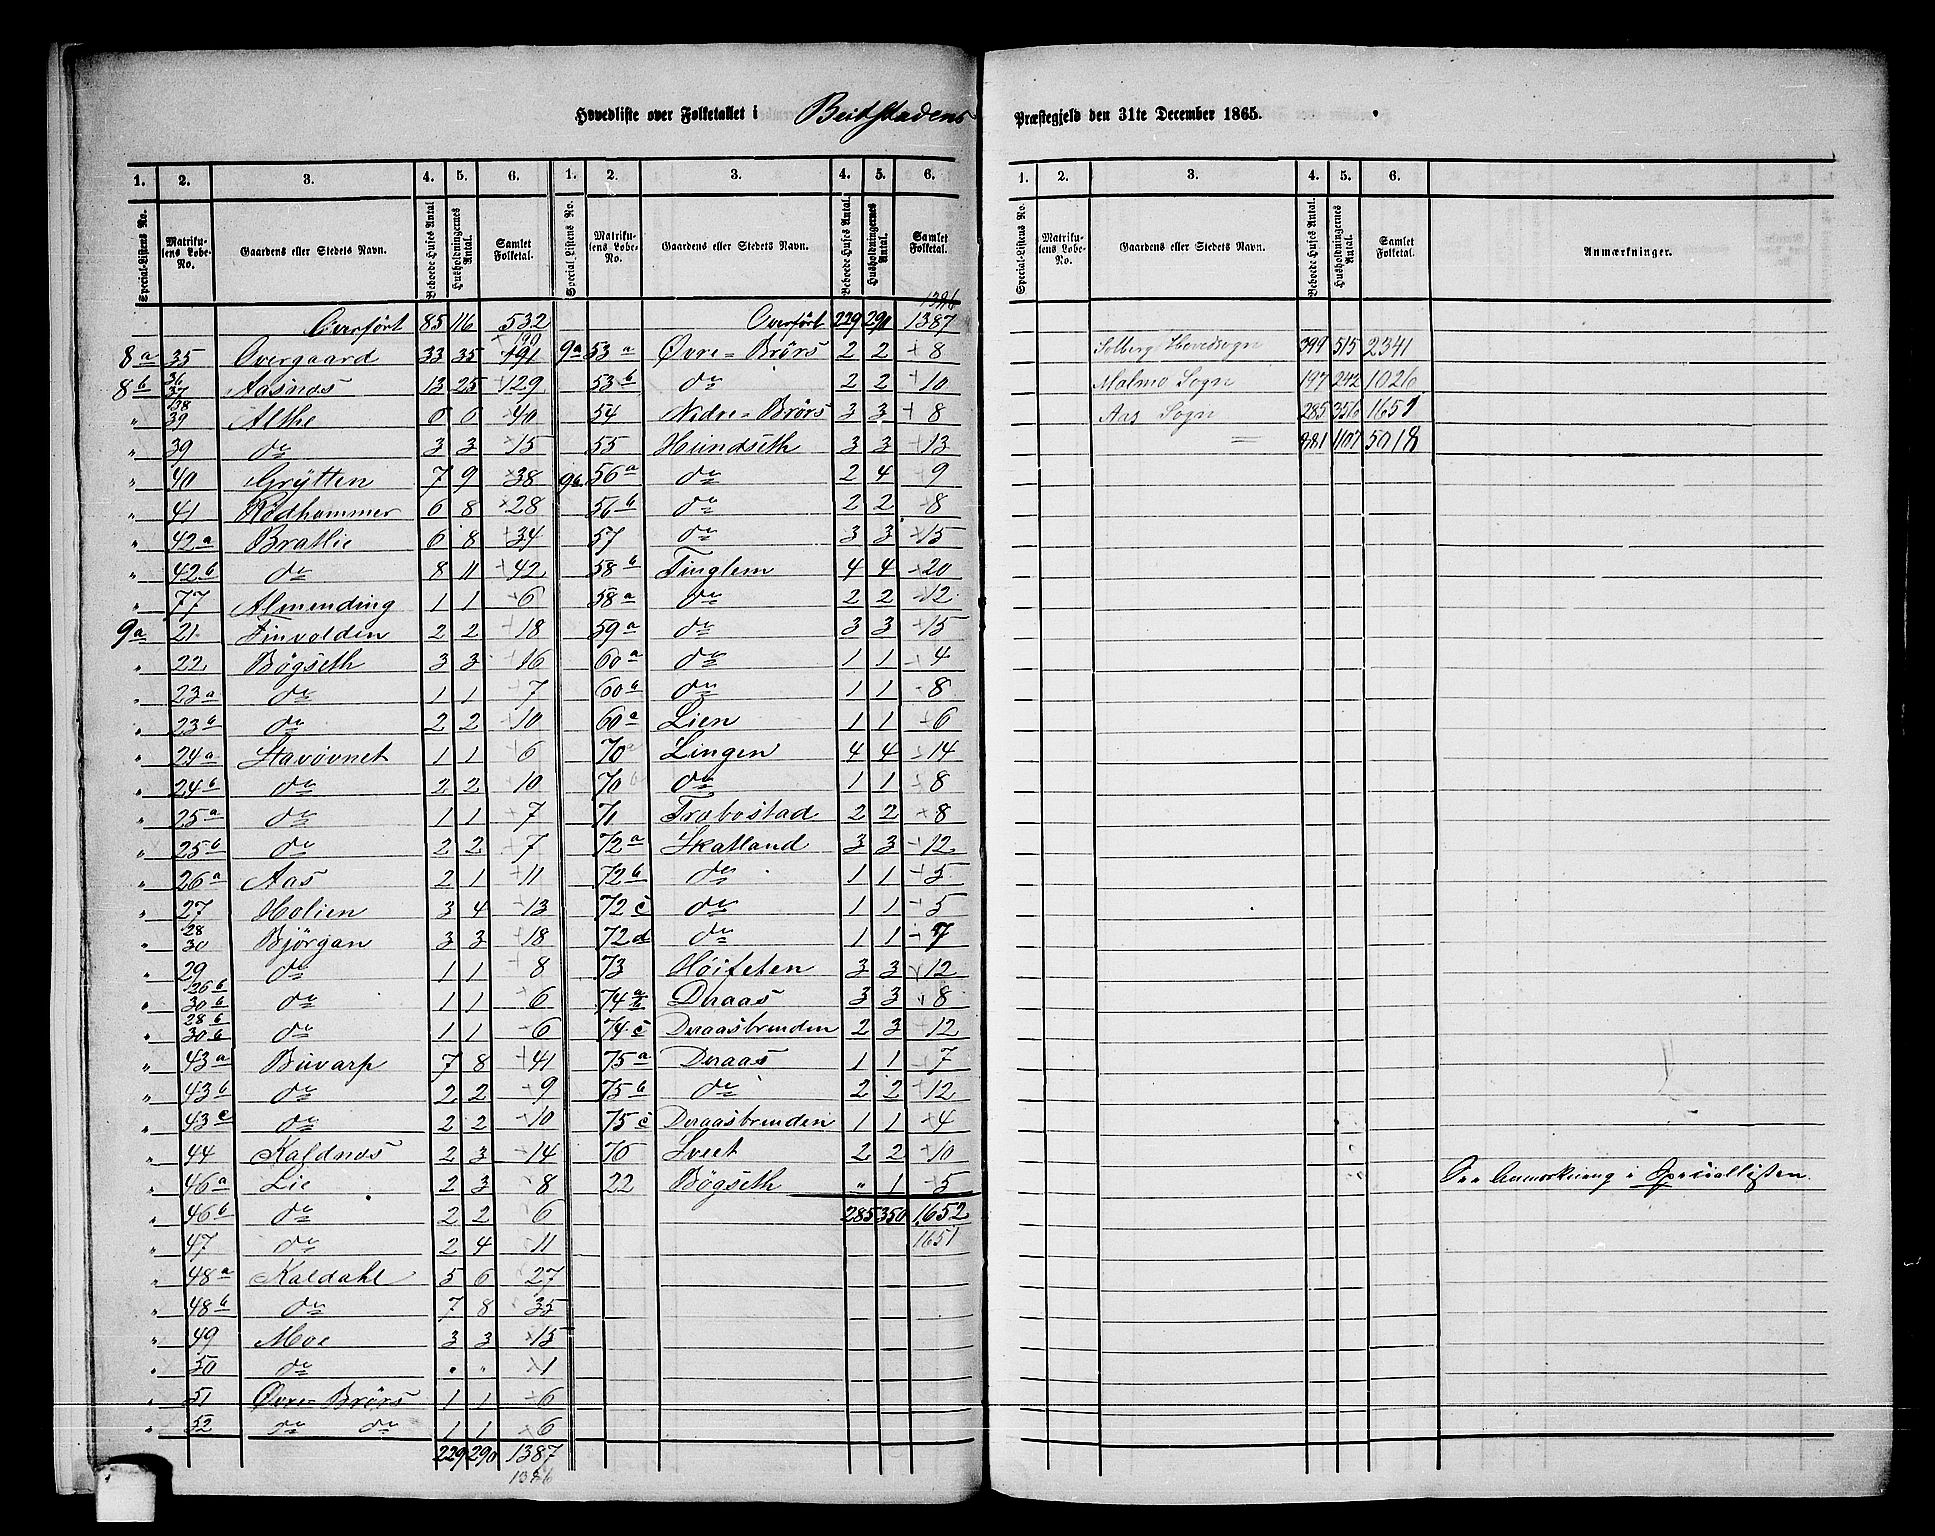 Hovedliste over Folketallet i Beitstadens Præstegjeld den 31te December 1865.
1. 2. 3. 4. 5. 6. 1. 2. 3. 4. 5. 6.
Special-Listens No. Matrikulens Løbe-No. Gaardens eller Stedets Navn. Beboede Huses Antal Husholdningernes Antal. Samlet Folketal. Special Listens No. Matrikulens Løbe-No. Gaardens eller Stedets Navn. Beboede Huses Antal. Husholdningernes Antal. Samlet Folketal.
Overført 85 116 532
8a 35 Overgaard 33 35 191 190
8b 36 37 Aasnæs 13 25 129
" 38 39 Althe 6 6 40
" 39 do 3 3 15
" 40 Grytten 7 9 38
" 41 Rødhammer 6 8 28
" 42a Bratlie 6 8 34
" 42b do 8 11 42
" 77 Almending 1 1 6
9a 21 Finvolden 2 2 18
" 22 Bøgseth 3 3 16
" 23a do 1 1 7
" 23b do 2 2 10
" 24a Stavøvnet 1 1 6
" 24b do 2 2 10
" 25a do 1 1 7
" 25b do 2 2 7
" 26a Aas 2 1 11
" 27 Holien 3 4 13
" 28 30 Bjørgan 3 3 18
" 29 do 1 1 8
" 26b 30b do 1 1 6
" 28b 30b do 1 1 6
" 43a Buvarp 7 8 41
" 43b do 2 2 9
" 43c do 2 2 10
" 44 Kaldnæs 2 3 14
" 46a Lie 2 3 8
" 46b do 2 2 6
" 47 do 2 4 11
" 48a Kaldahl 5 6 27
" 48b do 7 8 35
" 49 Moe 3 3 15
" 50 do " " 1
" 51 Øvre=Brørs 1 1 6
" 52 do do 1 1 6
229 290 1387
1386
1386
Overført 229 290 1387
9a 53a Øvre=Brørs 2 2 8
53b do 2 2 10
54 Nedre=Brørs 3 3 8
55 Hundseth 3 3 13
9b 56a do 2 4 9
56b do 2 2 8
57 do 3 3 15
58b Tinglem 4 4 20
58a do 2 2 12
59a do 3 3 15
60a do 1 1 4
60b do 1 1 8
60a Lien 1 1 6
70a Lingen 4 4 14
70b do 1 1 8
71 Træbostad 2 2 8
72a Skatland 3 3 12
72b do 1 1 5
72c do 1 1 5
72d do 1 1 7
73 Høifeten 3 3 12
74a/b Deraas 3 3 8
74c Deraasbrenden 2 3 12
75a Deraas 1 1 7
75b do 2 2 12
75c Deraasbrenden 1 1 4
76 Sveet 2 2 10
22 Bøgseth " 1 5
285 350 1652
1651
1. 2. 3. 4. 5. 6.
Special-Listens No. Matrikulens Løbe-No. Gaardens eller Stedets Navn. Beboede Huses Antal. Husholdningernes Antal. Samlet Folketal. Anmærkninger.
Solberg Hovedsogn 399 515 2341
Malmo Sogn 197 242 1026
Aas Sogn 285 350 1651
881 1107 5018
Anmærkning i Speciallisten.